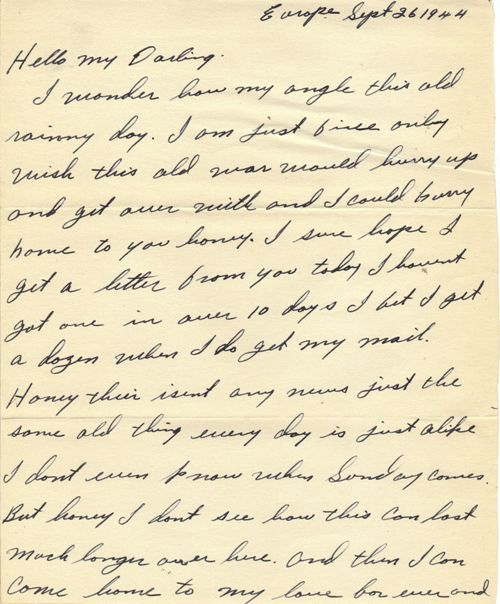 Europe Sept 26 1944
Hello my Darling.
I wonder how my angle this old
rainny day. I am just fine only
wish this old war would hurry up
and get over with and I could hurry
home to you honey. I sure hope I
get a letter from you today I havent
got one in over 10 days I bet I get
a dozen when I do get my mail.
Honey their isent any news just the
same old thing every day is just alike
I dont even know when Sunday comes.
But honey I dont see how this can last
much longer over here. And then I can
come home to my love for ever and